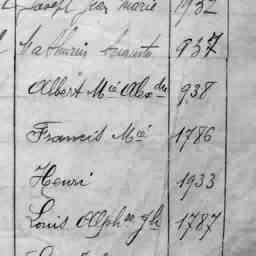 Joseph Jean Marie 1932
Mathurin Auguste 937
Albert Mie Alexdre 938
Francis Mie 1786
Henri 1933
Louis Alphse Jh 1787